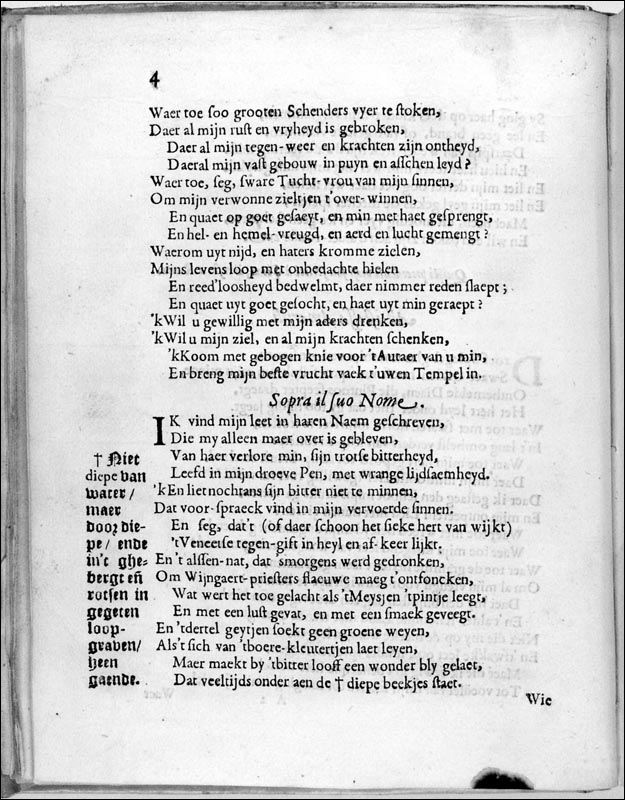 4
Waer toe soo grooten Schenders vyer te stoken,
Daer al mijn rust en vryheyd is gebroken,
Daer al mijn tegen-weer en krachten zijn ontheyd,
Daer al mijn vast gebouw in puyn en asschen leyd?
Waer toe, seg, sware Tucht-vrou van mijn sinnen,
Om mijn verwonne zieltjen t'over-winnen,
En quaet op goet gesaeyt, en min met haet gesprengt,
En hel- en hemel-vreugd, en aerd en lucht gemengt?
Waerom uyt nijd, en haters kromme zielen,
Mijns levens loop met onbedachte hielen
En reed'loosheyd bedwelmt, daer nimmer reden slaept;
En quaet uyt goet gesocht, en haet uyt min geraept?
'kWil u gewillig met mijn aders drenken,
'kWil u mijn ziel, en al mijn krachten schenken,
'kKoom met gebogen knie voor 'tAutaer van u min,
En breng mijn beste vrucht vaek t'uwen Tempel in.
Sopra il suo Nome.
IK vind mijn leet in haren Naem geschreven,
Die my alleen maer over is gebleven,
Van haer verlore min, sijn trotse bitterheyd,
Leefd in mijn droeve Pen, met wrange lijdsaemheyd.
'kEn liet nochtans sijn bitter niet te minnen,
Dat voor-spraeck vind in mijn vervoerde sinnen.
En seg, dat't (of daer schoon het sieke hert van wijkt)
'tVeneetse tegen-gift in heyl en af-keer lijkt.
En 't alssen-nat, dat smorgens werd gedronken,
Om Wijngaert-priesters flaeuwe maeg t'ontfoncken,
Wat wert het toe gelacht als 'tMeysjen 'tpintje leegt,
En met een lust gevat, en met een smaek geveegt.
En 'tdertel geytjen soekt geen groene weyen,
Als't sich van 'tboere-kleutertjen laet leyen,
Maer maekt by 'tbitter looff een wonder bly gelaet,
Dat veeltijds onder aen de † diepe beekjes staet.
† Niet
diepe van
water/
maer
door die-
pe/ ende
in't ghe-
bergt eñ
rotsen in
gegeten
loop-
graven/
heen
gaende.
Wie